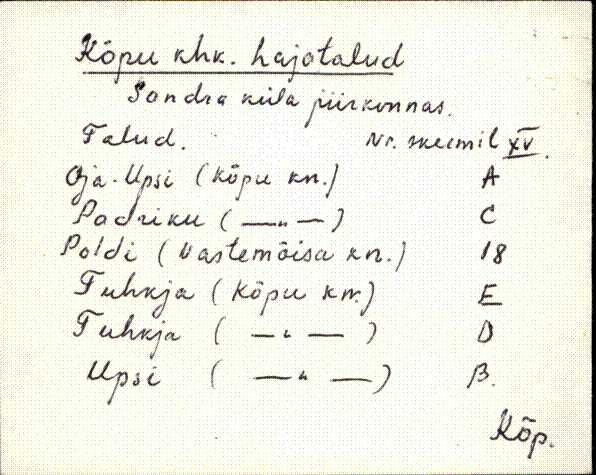 Kõpu khk. hajatalud
Sandra küla piirkonnas.
Talud. Nr. skeemil XV.
Oja-Upsi (Kõpu kn.) A
Padriku (—„—) C
Poldi (Vastemõisa kn.) 18
Tuhkja (Kõpu kn.) E
Tuhkja (—„—) D
Upsi (—„—) B.
Kõp.